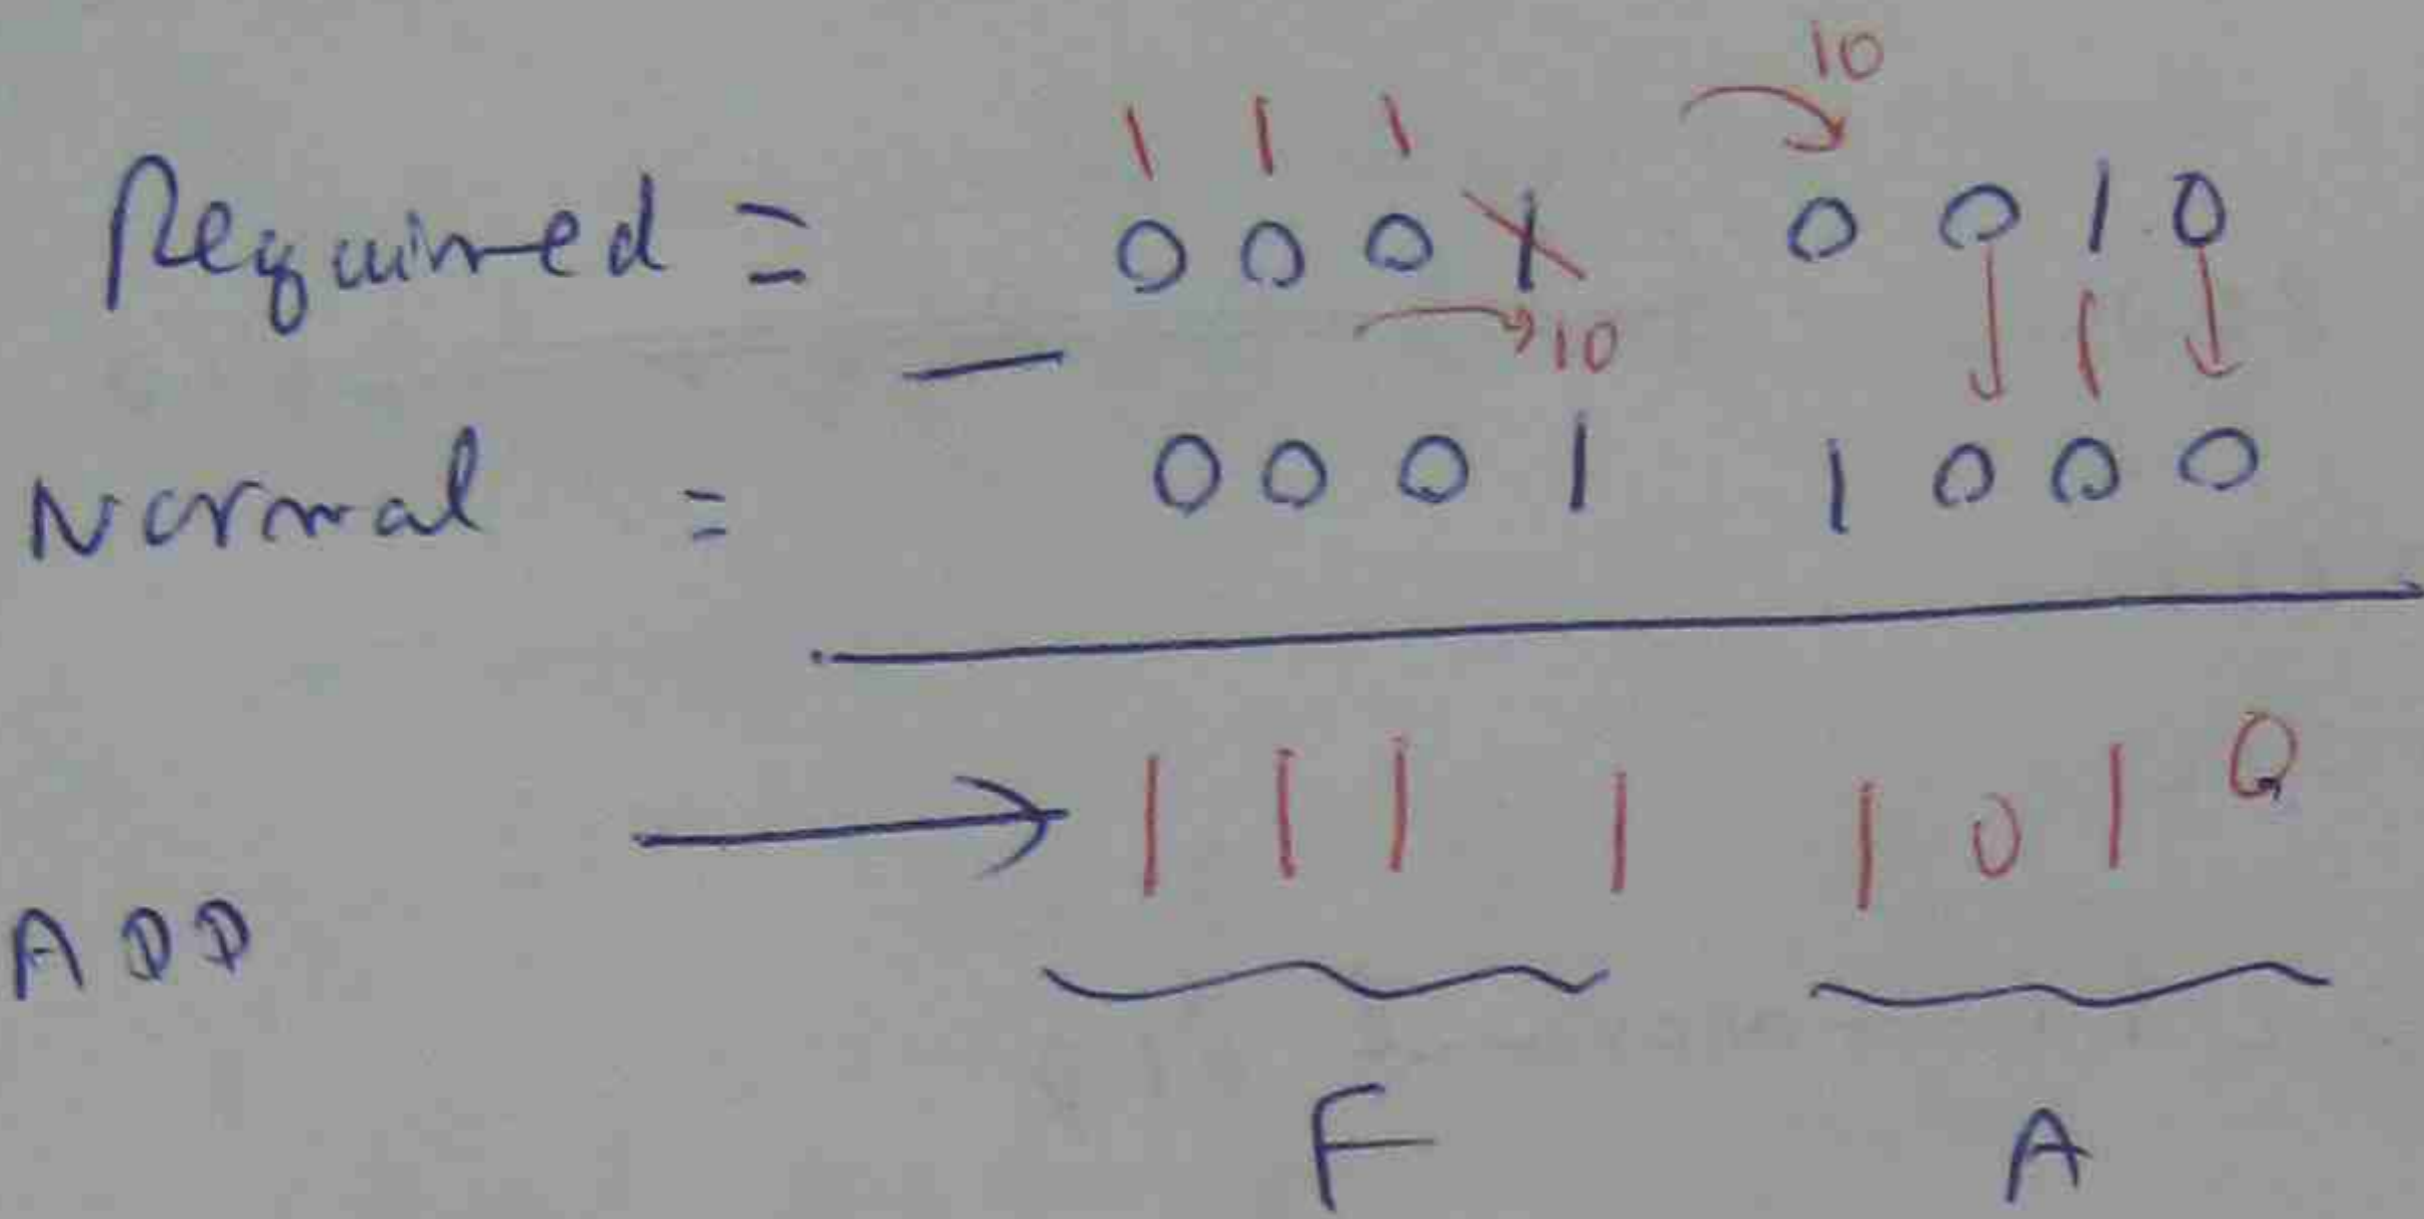 10
1 1 1
Required = 0 0 0 1 0 0 1 0
10 1
— Normal = 0 0 0 1 1 0 0 0
→ 1 1 1 1 1 0 1 0
ADD
F A